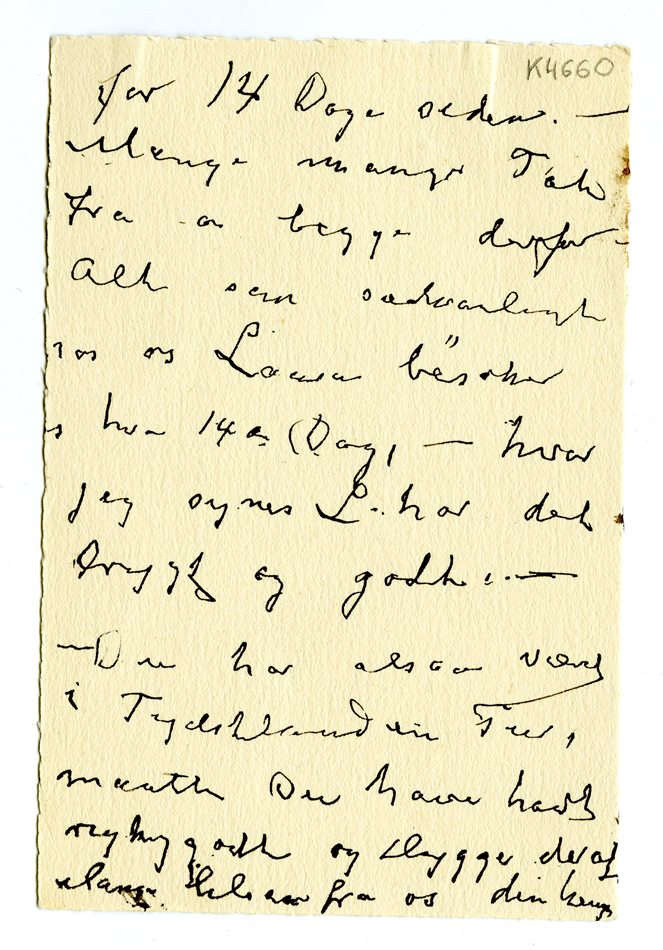 K4660
for 14 Dage siden. —
Mange mange Tak
fra os begge derfor —
Alt som sædvanligt
hos os Laura besøker
os hver 14 de Dag, — hvor
jeg synes L. har det
trygt og godt. —
— Du har altsaa været
i Tydskland en Tur,
maatte Du have havt
rigtig godt og Hygge deraf
Mange Hilsener fra os din